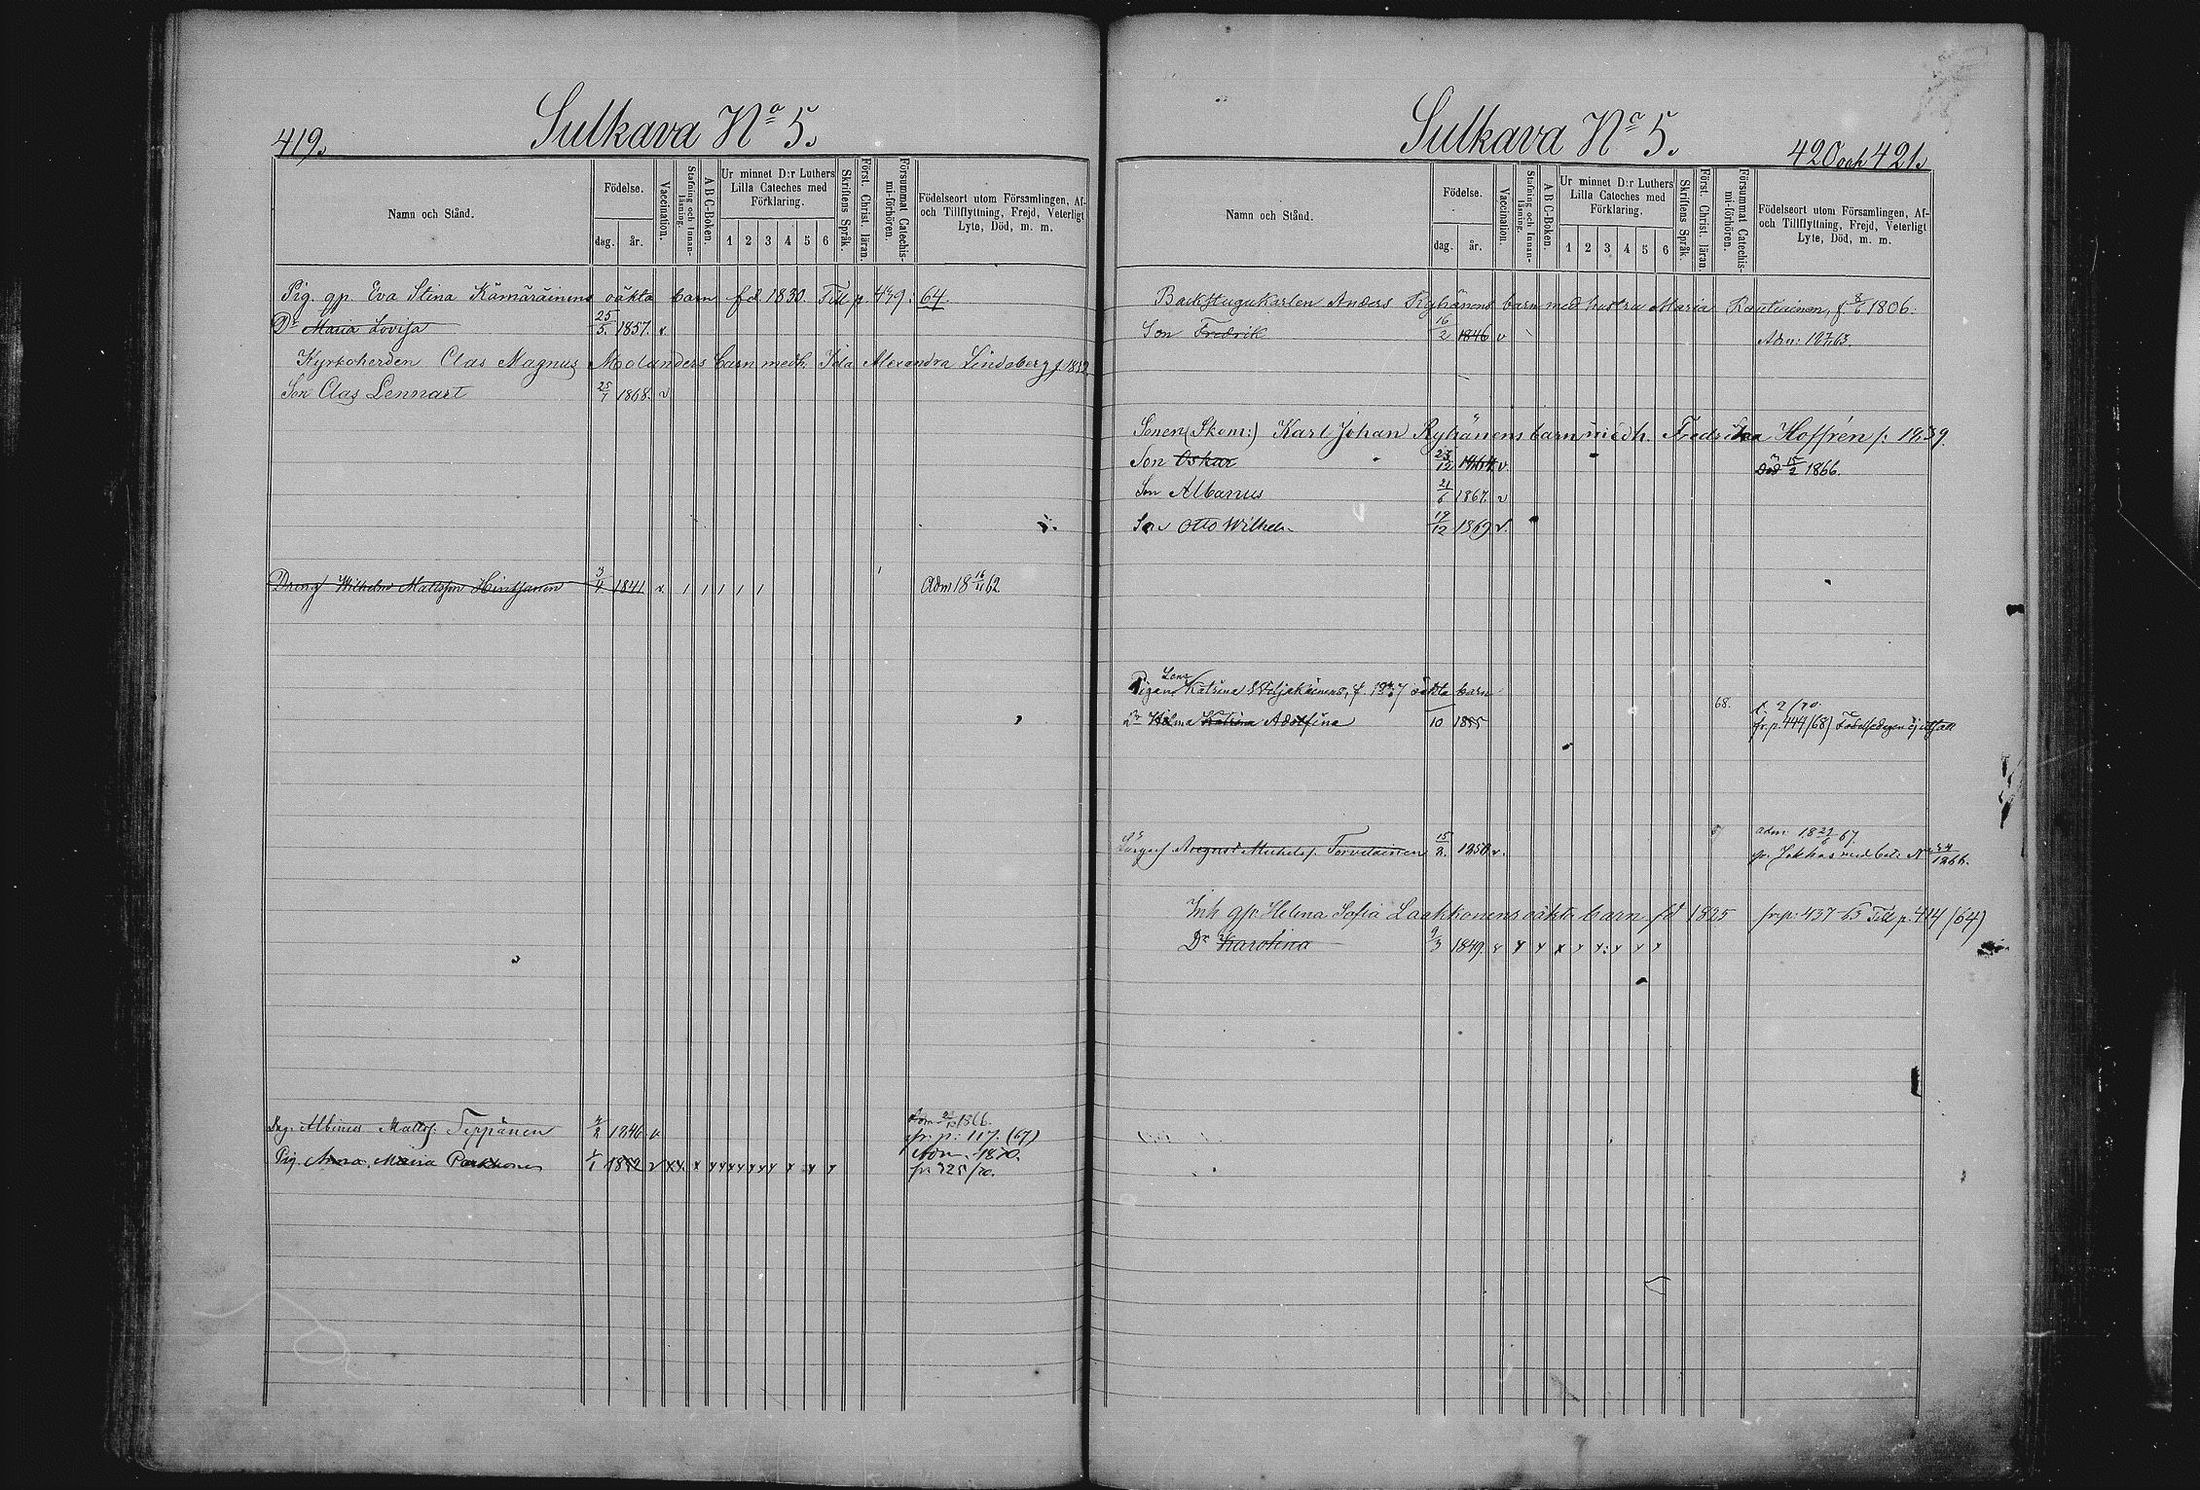 419.
Sulkava No 5.
Namn och Stånd.
Födelse.
dag.
år.
Vaccination.
Stafning och Innan-läsning.
A B C-Boken.
Ur minnet D:r Luthers
Lilla Cateches med
Förklaring.
1 2 3 4 5 6
Skriftens Språk.
Först. Christ. läran.
Försummat Catechis-mi-förhören.
Födelseort utom Församlingen, Af-
och Tillflyttning, Frejd, Veterligt
Lyte, Död, m. m.
Pig. gp. Eva Stina Kämäräinens oäkta barn fd. 1830. Till p. 479: 64.
Dr Maria Lovisa 25/5. 1857. v.
Kyrkoherden Clas Magnus Molanders barn medh. Ida Alexandra Lindeberg f. 1832
Son Clas Lennart 25/7 1868. v
Dreng Wilhelm Mattsson Hintsanen 3/9 1841 v. / / / / / Adm 18 16/11 62
Drg. Albinus Matts: Teppänen 4/2 1846 v.
fr. p: 117. (67)
Pig. Anna Maria Parkkonen 1/1 1852 v x x x y y x x y y y y x y y
Adm. 1870.
fr 325/70.
Sulkava No 5.
420 och 421.
Namn och Stånd.
Födelse.
dag.
år.
Vaccination.
Stafning och Innan-läsning.
A B C-Boken.
Ur minnet D:r Luthers
Lilla Cateches med
Förklaring.
1 2 3 4 5 6
Skriftens Språk.
Först. Christ. läran.
Försummat Catechis-mi-förhören.
Födelseort utom Församlingen, Af-
och Tillflyttning, Frejd, Veterligt
Lyte, Död, m. m.
Backstugukarlen Anders Ryhänens barn med hustru Maria Rautiainen, f 8/6 1806.
Son Fredrik 16/2 1846 v
Sonen (Skom:) Karl Johan Ryhänens barn medh. Fredrika Hoffrén f: 1839.
Son Oskar 23/12 1864. v. Död 15/2 1866.
Son Albanus 21/6 1867. v
Son Otto Wilhelm 19/12 1869 v.
Pigan Katrina Väljakainens, f. 1837 oäkta barn
Dr Hilma Katrina Adolfina 10 1855 68.
fr. p. 444 (68)
August Michelss. Torvelainen 15/2. 1850 v.
Inh. gp. Helena Sofia Laakkonens oäkta barn fd 1825 fr. p: 437 65 Till p. 414 (64)
Dr Karolina 9/3 1849. y y y x y y: y y y